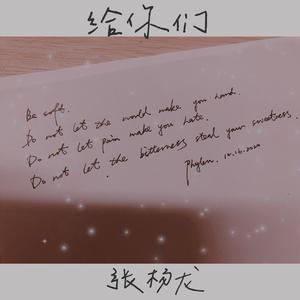 给你们
Be soft.
Do not let the world make you hard.
Do not let pain make you hate.
Do not let the bitterness steal your sweetness.
Phylen. 10.16.2020
张杨龙